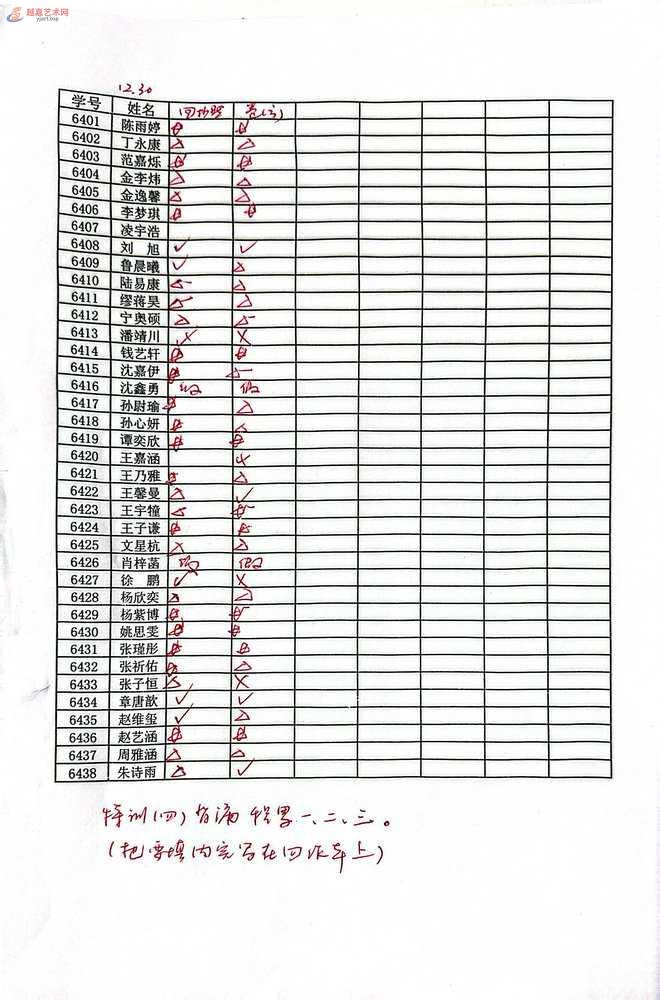 越嘉艺术网
yjart.top
12.30
学号 姓名 回抄默 卷(六)
6401 陈雨婷
6402 丁永康 △ △
6403 范嘉烁
6404 金李炜 △ △
6405 金逸馨 △ △
6406 李梦琪
6407 凌宇浩
6408 刘旭 ✓ ✓
6409 鲁晨曦 ✓ △
6410 陆易康 △
6411 缪蒋昊 △
6412 宁奥硕 △
6413 潘靖川 ✗
6414 钱艺轩
6415 沈嘉伊
6416 沈鑫勇 假 假
6417 孙尉瑜 △
6418 孙心妍
6419 谭奕欣
6420 王嘉涵
6421 王乃雅 △
6422 王馨曼 △ ✓
6423 王宇犝
6424 王子谦
6425 文星杭 ✗ △
6426 肖梓菡 假 假
6427 徐鹏 ✓ ✗
6428 杨欣奕 △ △
6429 杨紫博
6430 姚思雯
6431 张瑾彤
6432 张祈佑 △
6433 张子恒 △ ✗
6434 章唐歆 ✓ ✓
6435 赵维玺 ✓ △
6436 赵艺涵
6437 周雅涵 △ △
6438 朱诗雨 △ ✓
特训(四)背诵 积累一、二、三。
(把要填内容写在回作本上)